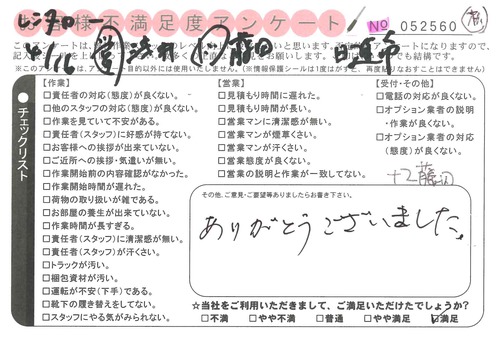 レンタロー
お客様不満足度アンケート
NO 052560
4/16
日通市
【作業】
□責任者の対応(態度)が良くない。
□他のスタッフの対応(態度)が良くない。
□作業を見ていて不安がある。
□責任者(スタッフ)に好感が持てない。
□お客様への挨拶が出来ていない。
□ご近所への挨拶・気遣いが無い。
□作業開始前の内容確認がなかった。
□作業開始時間が遅れた。
□荷物の取り扱いが雑である。
□お部屋の養生が出来ていない。
□作業時間が長すぎる。
□責任者(スタッフ)に清潔感が無い。
□責任者(スタッフ)が汗くさい。
□トラックが汚い。
□梱包資材が汚い。
□運転が不安(下手)である。
□靴下の履き替えをしてない。
□スタッフにやる気がみられない。
【営業】
□見積もり時間に遅れた。
□見積もり時間が長い。
□営業マンに清潔感が無い。
□営業マンが煙草くさい。
□営業マンが汗くさい。
□営業態度が良くない。
□営業の説明と作業が一致してない。
【受付・その他】
□電話の対応が良くない。
□オプション業者の説明
・作業が良くない。
□オプション業者の対応
(態度)が良くない。
チェックリスト
その他、ご意見・ご要望等ありましたらお書き下さい。
ありがとうございました。
☆当社をご利用いただきまして、ご満足いただけたでしょうか?
□不満 □やや不満 □普通 □やや満足 ☑満足